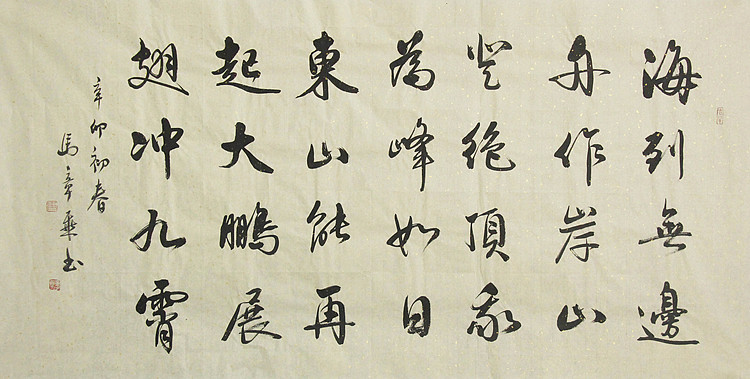 海到無邊
天作岸山
登絶頂我
為峰如日
東山能再
起大鵬展
翅冲九霄
辛卯初春
馬章书